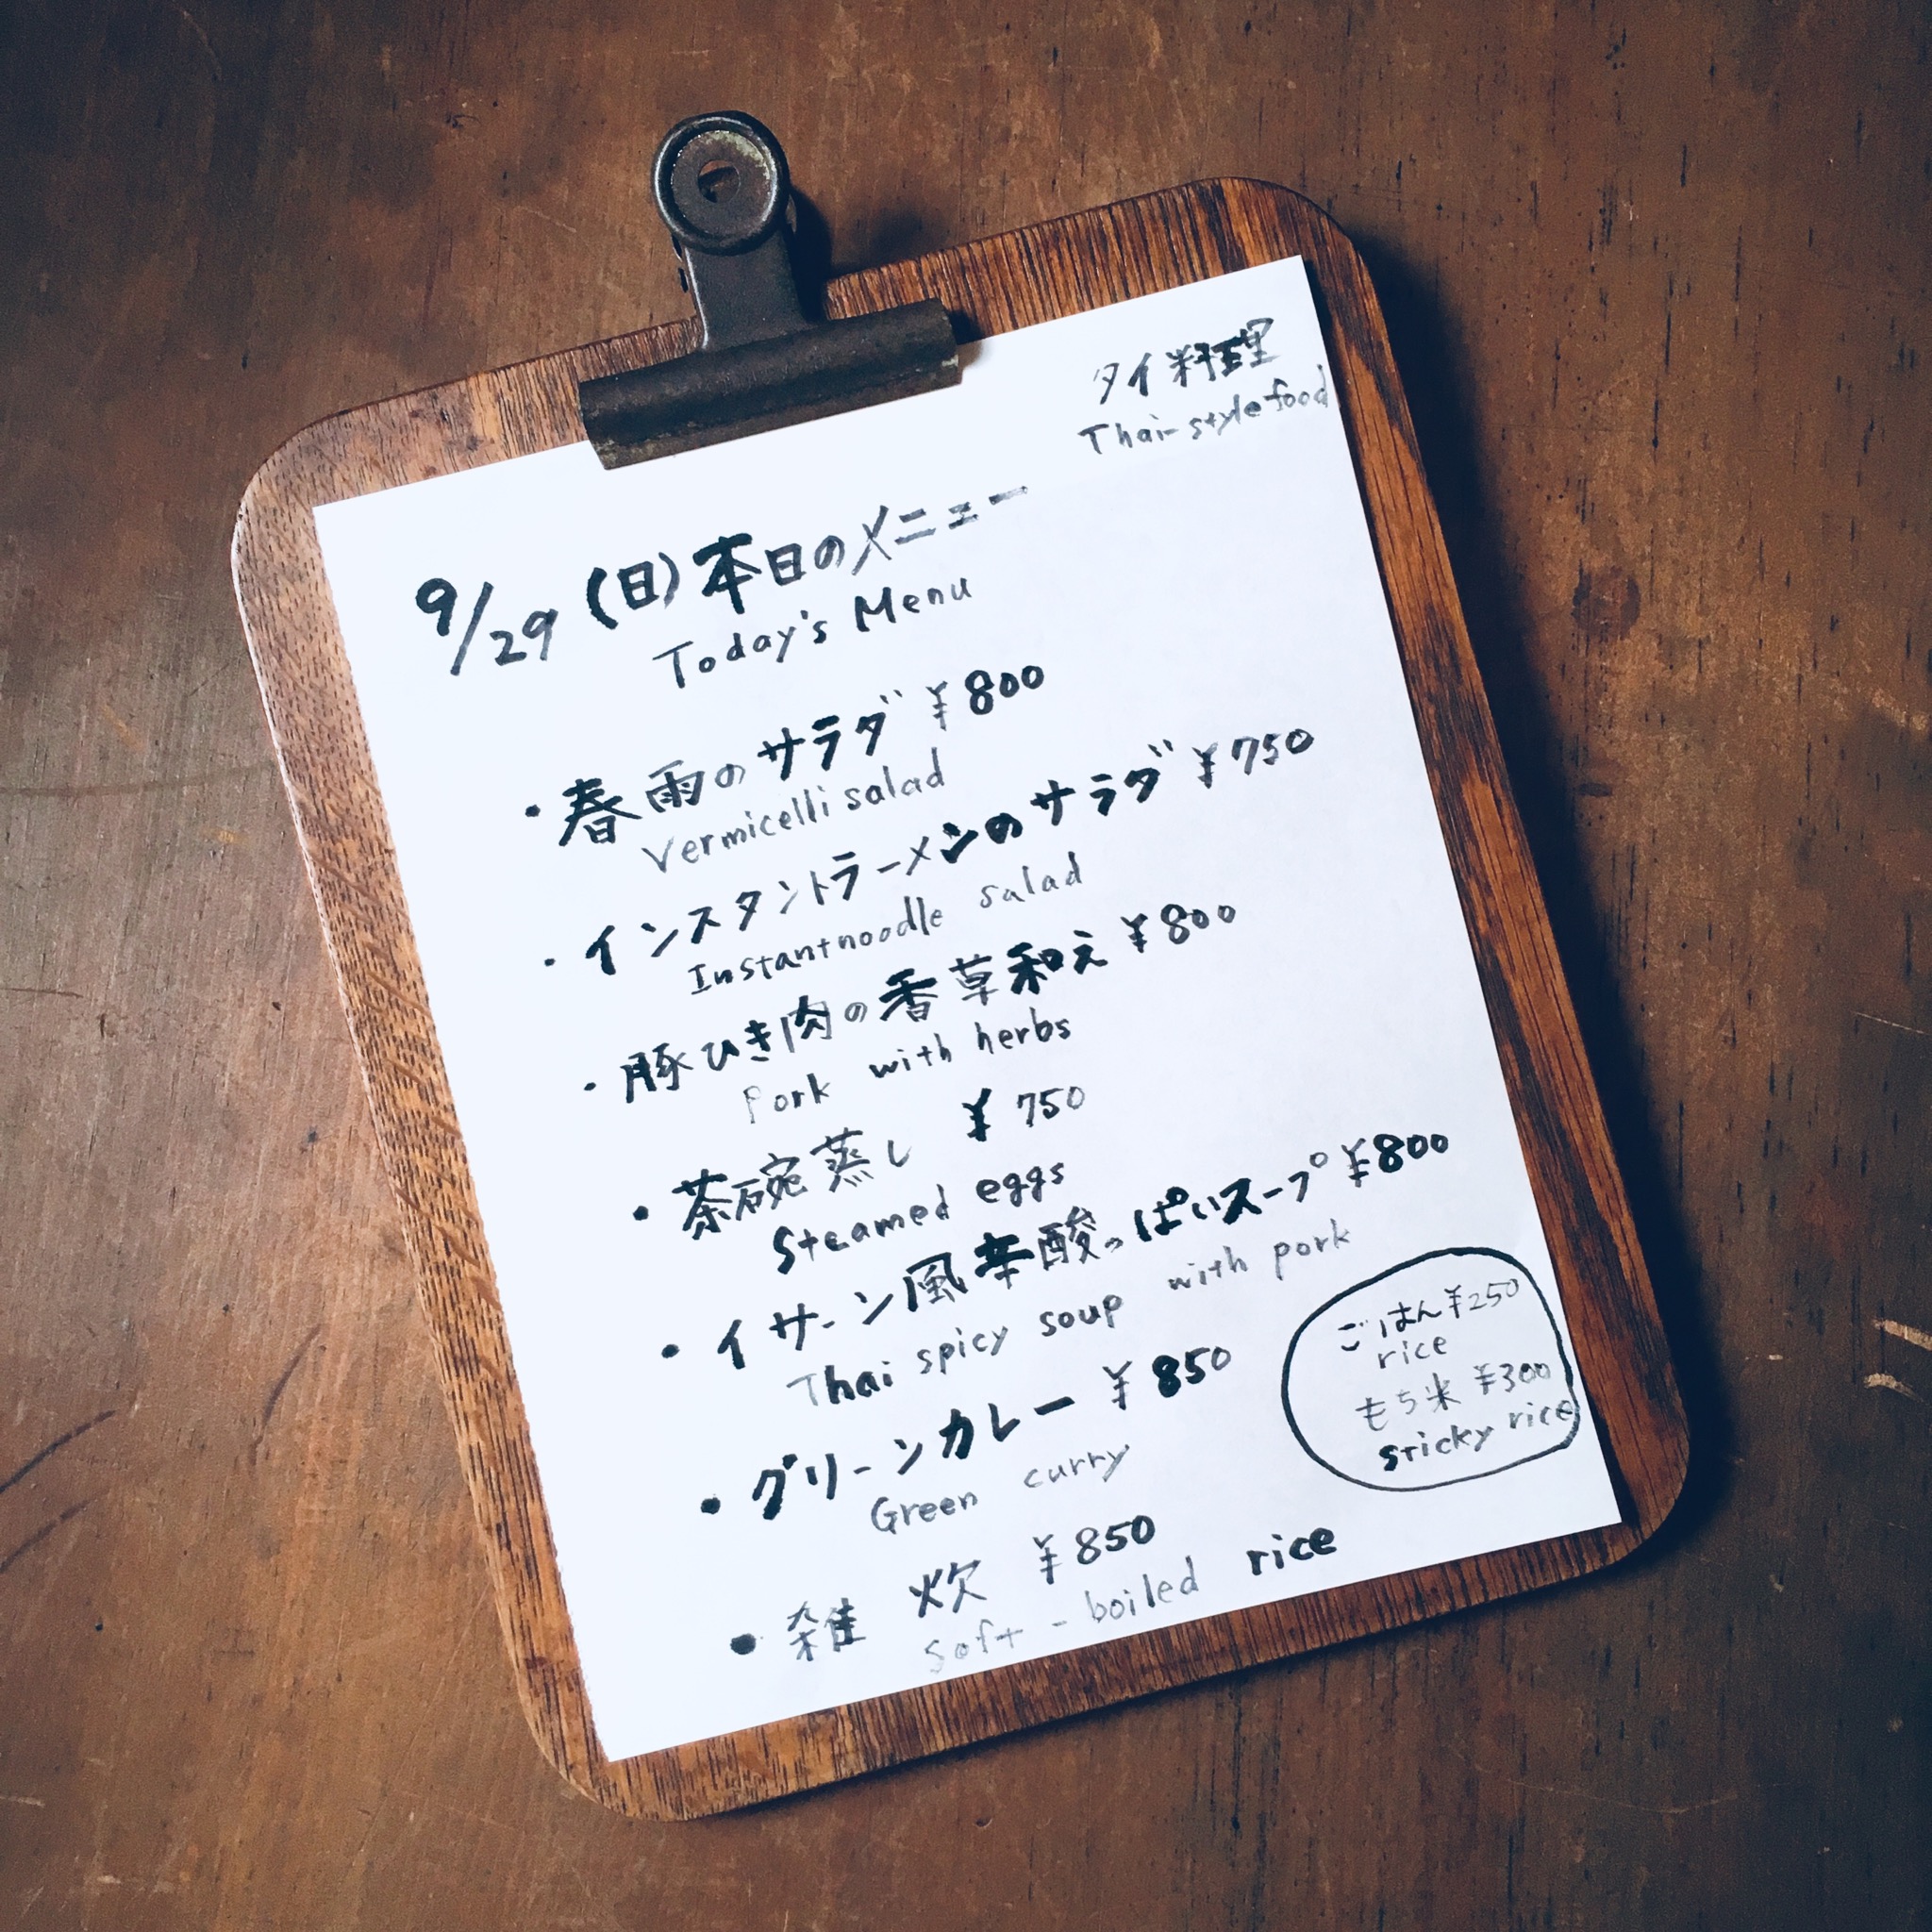 タイ料理
Thai-style food
9/29 (日) 本日のメニュー
Today's Menu
・春雨のサラダ ¥800
Vermicelli salad
・インスタントラーメンのサラダ ¥750
Instant noodle salad
・豚ひき肉の香草和え ¥800
Pork with herbs
・茶碗蒸し ¥750
Steamed eggs
・イサーン風辛酸っぱいスープ ¥800
Thai spicy soup with pork
・グリーンカレー ¥850
Green curry
・雑炊 ¥850
Soft-boiled rice
ごはん ¥250
rice
もち米 ¥300
sticky rice